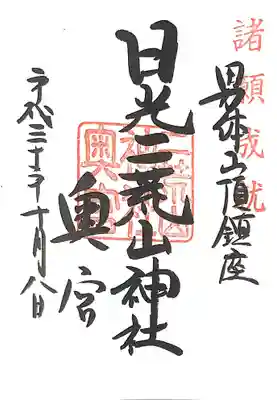 諸願成就
男体山頂鎮座
日光二荒山神社
奥宮
平成三十年十月八日